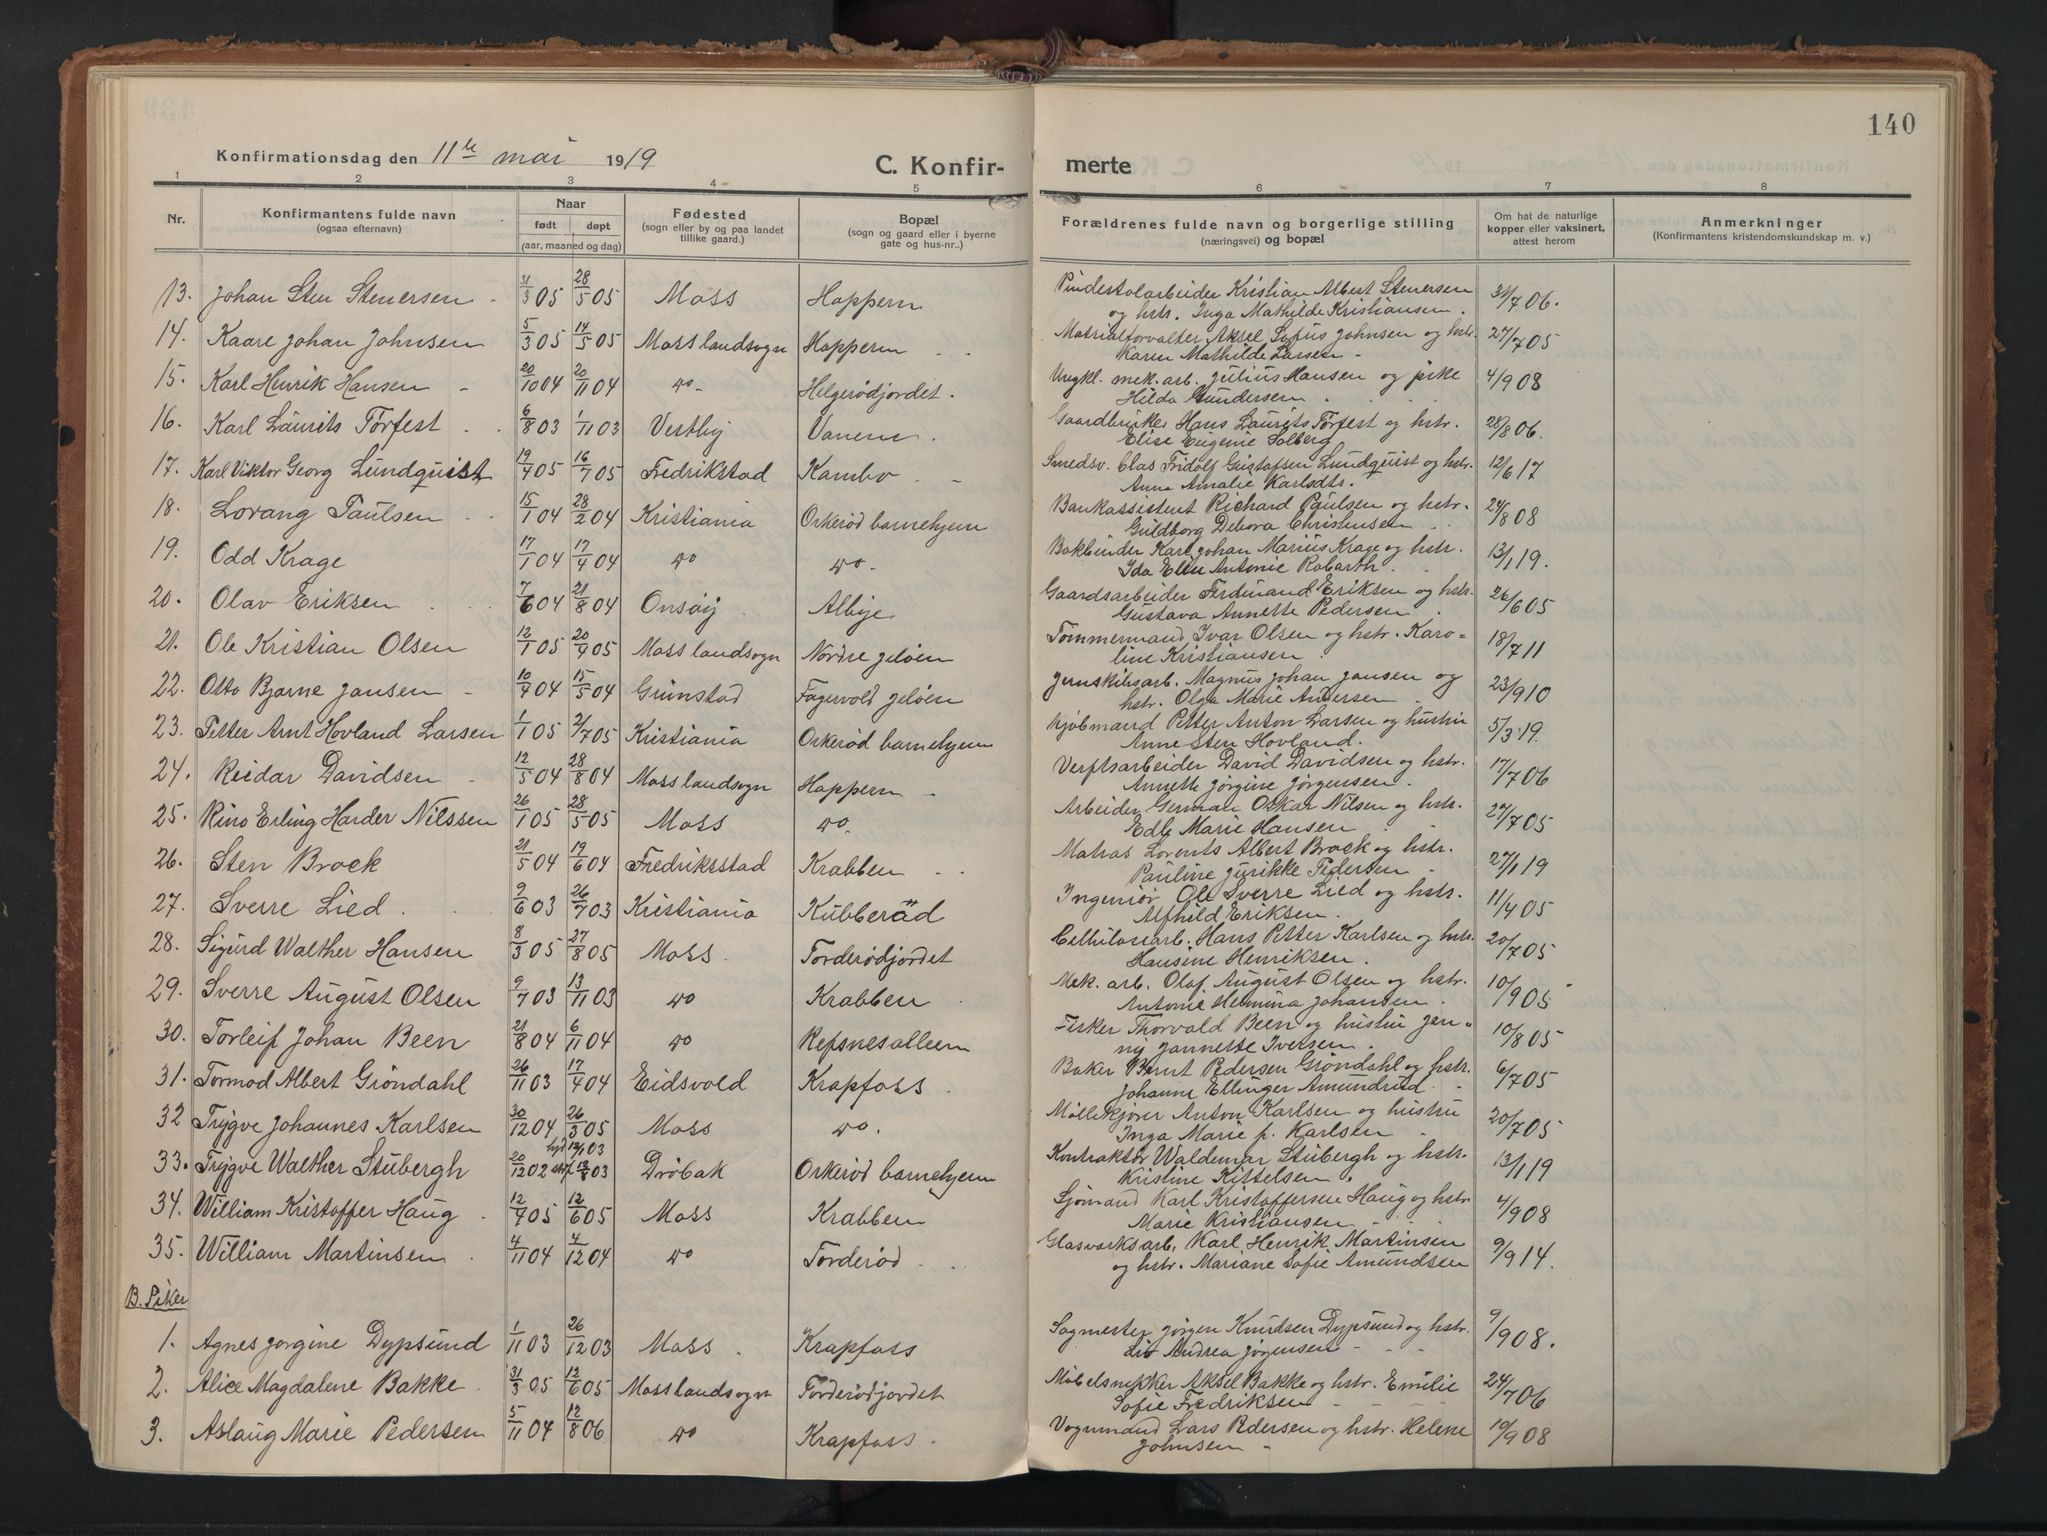 140
Konfirmationsdag den 11te mai 1919
C. Konfirmerte
1 2 3 4 5 6 7 8
Nr.
Konfirmantens fulde navn (ogsaa efternavn)
Naar født døpt (aar, maaned og dag)
Fødested (sogn eller by og paa landet tillike gaard.)
Bopæl (sogn og gaard eller i byerne gate og hus-nr..)
Forældrenes fulde navn og borgerlige stilling (næringsvei) og bopæl
Om hat de naturlige kopper eller vaksinert, attest herom
Anmerkninger (Konfirmantens kristendomskundskap m. v.)
13. Johan Sten Stenersen 31/3 05 28/5 05 Moss Hoppern Pindestolarbeider Kristian Albert Stenersen 31/7 06.
og hstr. Inga Mathilde Kristiansen.
14. Kaare Johan Johnsen 5/3 05 14/5 05 Moss landsogn Hoppern Matrialforvalter Aksel Sofus Johnsen og hstr. 27/7 05
Karen Mathilde Larsen
15. Karl Henrik Hansen 20/10 04 20/11 04 do Helgerødjordet. Ungkl. mek. arb. Julius Hansen og pike 4/9 08
Hilda Gundersen
16. Karl Laurits Torfest 6/8 03 1/11 03 Vestby Vanem Gaardbruker Hans Laurits Torfest og hstr. 28/8 06.
Elise Eugenie Solberg
17. Karl Viktor Georg Lundquist 19/4 05 16/7 05 Fredrikstad Kambo Smedsv. Clas Fridolf Gustafsen Lundquist og hstr. 12/6 17
Anna Amalie Karlsdtr.
18. Lorang Paulsen 15/1 04 28/2 04 Kristiania Orkerød barnehjem Bankassistent Richard Paulsen og hstr. 24/8 08
Guldborg Debora Christensen
19. Odd Krage 17/1 04 17/4 04 do do Bokbinder Karl Johan Marius Krage og hstr. 13/1 19.
Ida Elise Antonie Robarth
20. Olav Eriksen 7/6 04 21/8 04 Onsøy Albye Gaardsarbeider Ferdinand Eriksen og hstr. 26/6 05
Gustava Annette Pedersen
21. Ole Kristian Olsen 12/1 05 20/4 05 Moss landsogn Nordre Jeløen Tømmermand Ivar Olsen og hstr. Karo- 18/7 11
line Kristiansen
22. Otto Bjarne Jansen 10/4 04 15/5 04 Grimstad Fagervold Jeløen Magnus Johan Jansen og 23/9 10
hstr. Olga Marie Andersen
23. Petter Arnt Hovland Larsen 1/1 05 2/7 05 Kristiania Orkerød barnehjem Kjøbmand Petter Anton Larsen og hustru 5/3 19.
Anne Sten Hovland.
24. Reidar Davidsen 12/5 04 28/8 04 Moss landsogn Hoppern Verftsarbeider David Davidsen og hstr. 17/7 06
Annette Jørgine Jørgensen
25. Rino Erling Harder Nilssen 26/1 05 28/5 05 Moss do. Arbeider German Oskar Nilsen og hstr. 27/7 05
Edle Marie Hansen
26. Sten Brock 21/5 04 19/6 04 Fredriksstad Krabben Matros Lorents Albert Brock og hstr. 27/1 19
Pauline Jurikke Pedersen
27. Sverre Lied 9/6 03 26/7 03 Kristiania Kubberød Ingeniør Ole Sverre Lied og hstr. 11/4 05
Alfhild Eriksen.
28. Sigurd Walther Hansen 8/3 05 27/8 05 Moss Torderødjordet Cellulosearb. Hans Petter Karlsen og hstr. 20/7 05
Hansine Henriksen.
29. Sverre August Olsen 9/7 03 13/11 03 do Krabben Mek. arb. Olaf August Olsen og hstr. 10/9 05
Antonie Hermina Johansen
30. Torleif Johan Been 21/8 04 6/11 04 do Refsnesalleen Fisker Thorvald Been og hustru Jen- 10/8 05
ny Jannette Iversen.
31. Tormod Albert Grøndahl 26/11 03 17/4 04 Eidsvold Krapfoss Baker Bernt Pedersen Grøndahl og hstr. 6/7 05
Johanne Ellinger Amundrud
32 Trygve Johannes Karlsen 30/12 04 26/3 05 Moss do. Møllekjører Anton Karlsen og hustru 20/7 05
Inga Marie f. Karlsen
33. Trygve Walther Stubergh 20/12 02 Drøbak Orkerød barnehjem Kontraktør Waldemar Stubergh og hstr. 13/1 19
Kristine Kittelsen.
34. William Kristoffer Haug 12/4 05 12/6 05 Moss Krabben Sjømand Karl Kristoffersen Haug og hstr. 4/9 08
Marie Kristiansen
35. William Martinsen 4/11 04 4/12 04 do Torderød Glasverksarb. Karl Henrik Martinsen 9/9 14.
og hstr. Mariane Sofie Amundsen
B. Piker
1. Agnes Jørgine Dypsund 1/11 03 26/12 03 Moss Krapfoss Sagmester Jørgen Knudsen Dypsund og hstr. 9/9 08.
Liv Andrea Jørgensen
2. Alice Magdalene Bakke 31/3 05 12/6 05 Moss landsogn Torderødjordet Møbelsnekker Aksel Bakke og hstr. Emilie 24/7 06
Sofie Fredriksen
3. Aslaug Marie Pedersen 5/11 04 12/8 06 do Krapfoss Vognmand Lars Pedersen og hstr. Helene 10/9 08
Johnsen